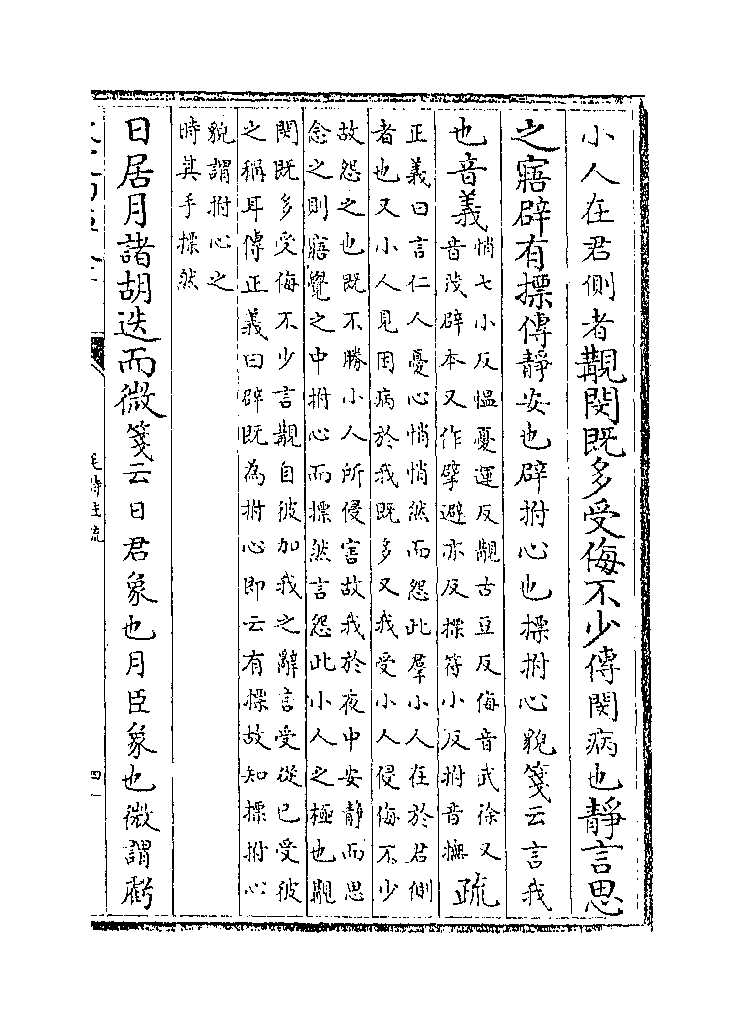 小人在君側者覯閔既多受侮不少傳閔病也靜言思
之寤辟有摽傳靜安也辟拊心也摽拊心貌箋云言我
也音義
悄七小反愠憂運反覯古豆反侮音武徐又
音茂辟本又作擘避亦反摽符小反拊音撫
疏
正義曰言仁人憂心悄悄然而怨此羣小人在於君側
者也又小人見困病於我既多又我受小人侵侮不少
故怨之也既不勝小人所侵害故我於夜中安靜而思
念之則寤覺之中拊心而摽然言怨此小人之極也覯
閔既多受侮不少言覯自彼加我之辭言受從已受彼
之稱耳傳正義曰辟既為拊心即云有摽故知摽拊心
貌謂拊心之
時其手摽然
日居月諸胡迭而微箋云日君象也月臣象也微謂虧
毛詩注疏
四